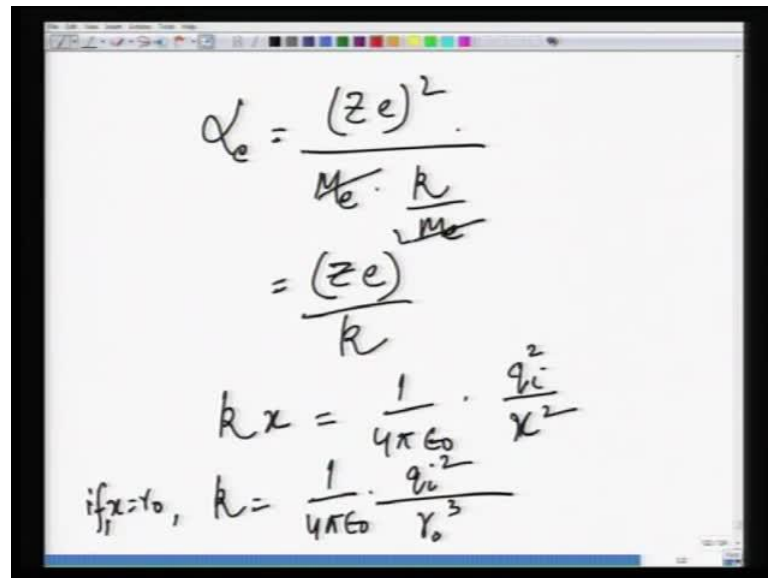 α_e = (Ze)² / (M_e · k/M_e)
= (Ze) / k
k x = 1/(4πε₀) · q_i²/x²
if, x = r₀, k = 1/(4πε₀) · q_i²/r₀³